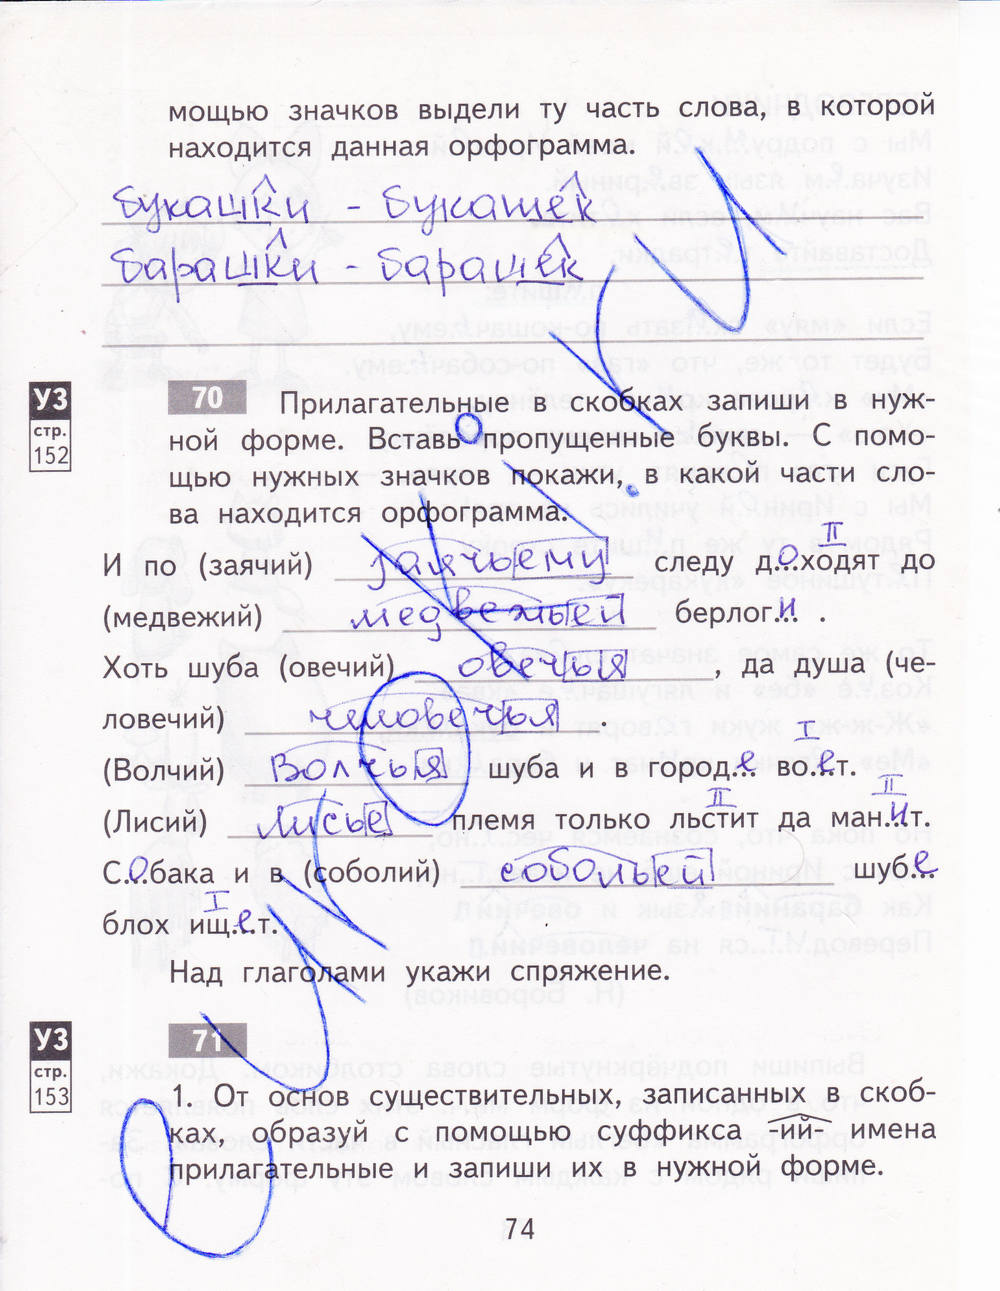 мощью значков выдели ту часть слова, в которой
находится данная орфограмма.
букашки - букашек
барашки - барашек
УЗ
стр.
152
70
Прилагательные в скобках запиши в нуж-
ной форме. Вставь пропущенные буквы. С помо-
щью нужных значков покажи, в какой части сло-
ва находится орфограмма.
И по (заячий) заячьему следу д.о.ходят до
(медвежий) медвежьей берлог.и. .
Хоть шуба (овечий) овечья, да душа (че-
ловечий) человечья.
(Волчий) Волчья шуба и в город.е. во.е.т.
(Лисий) Лисье племя только льстит да ман.и.т.
С.о.бака и в (соболий) собольей шуб.е.
блох ищ.е.т.
Над глаголами укажи спряжение.
УЗ
стр.
153
71
1. От основ существительных, записанных в скоб-
ках, образуй с помощью суффикса -ий- имена
прилагательные и запиши их в нужной форме.
74